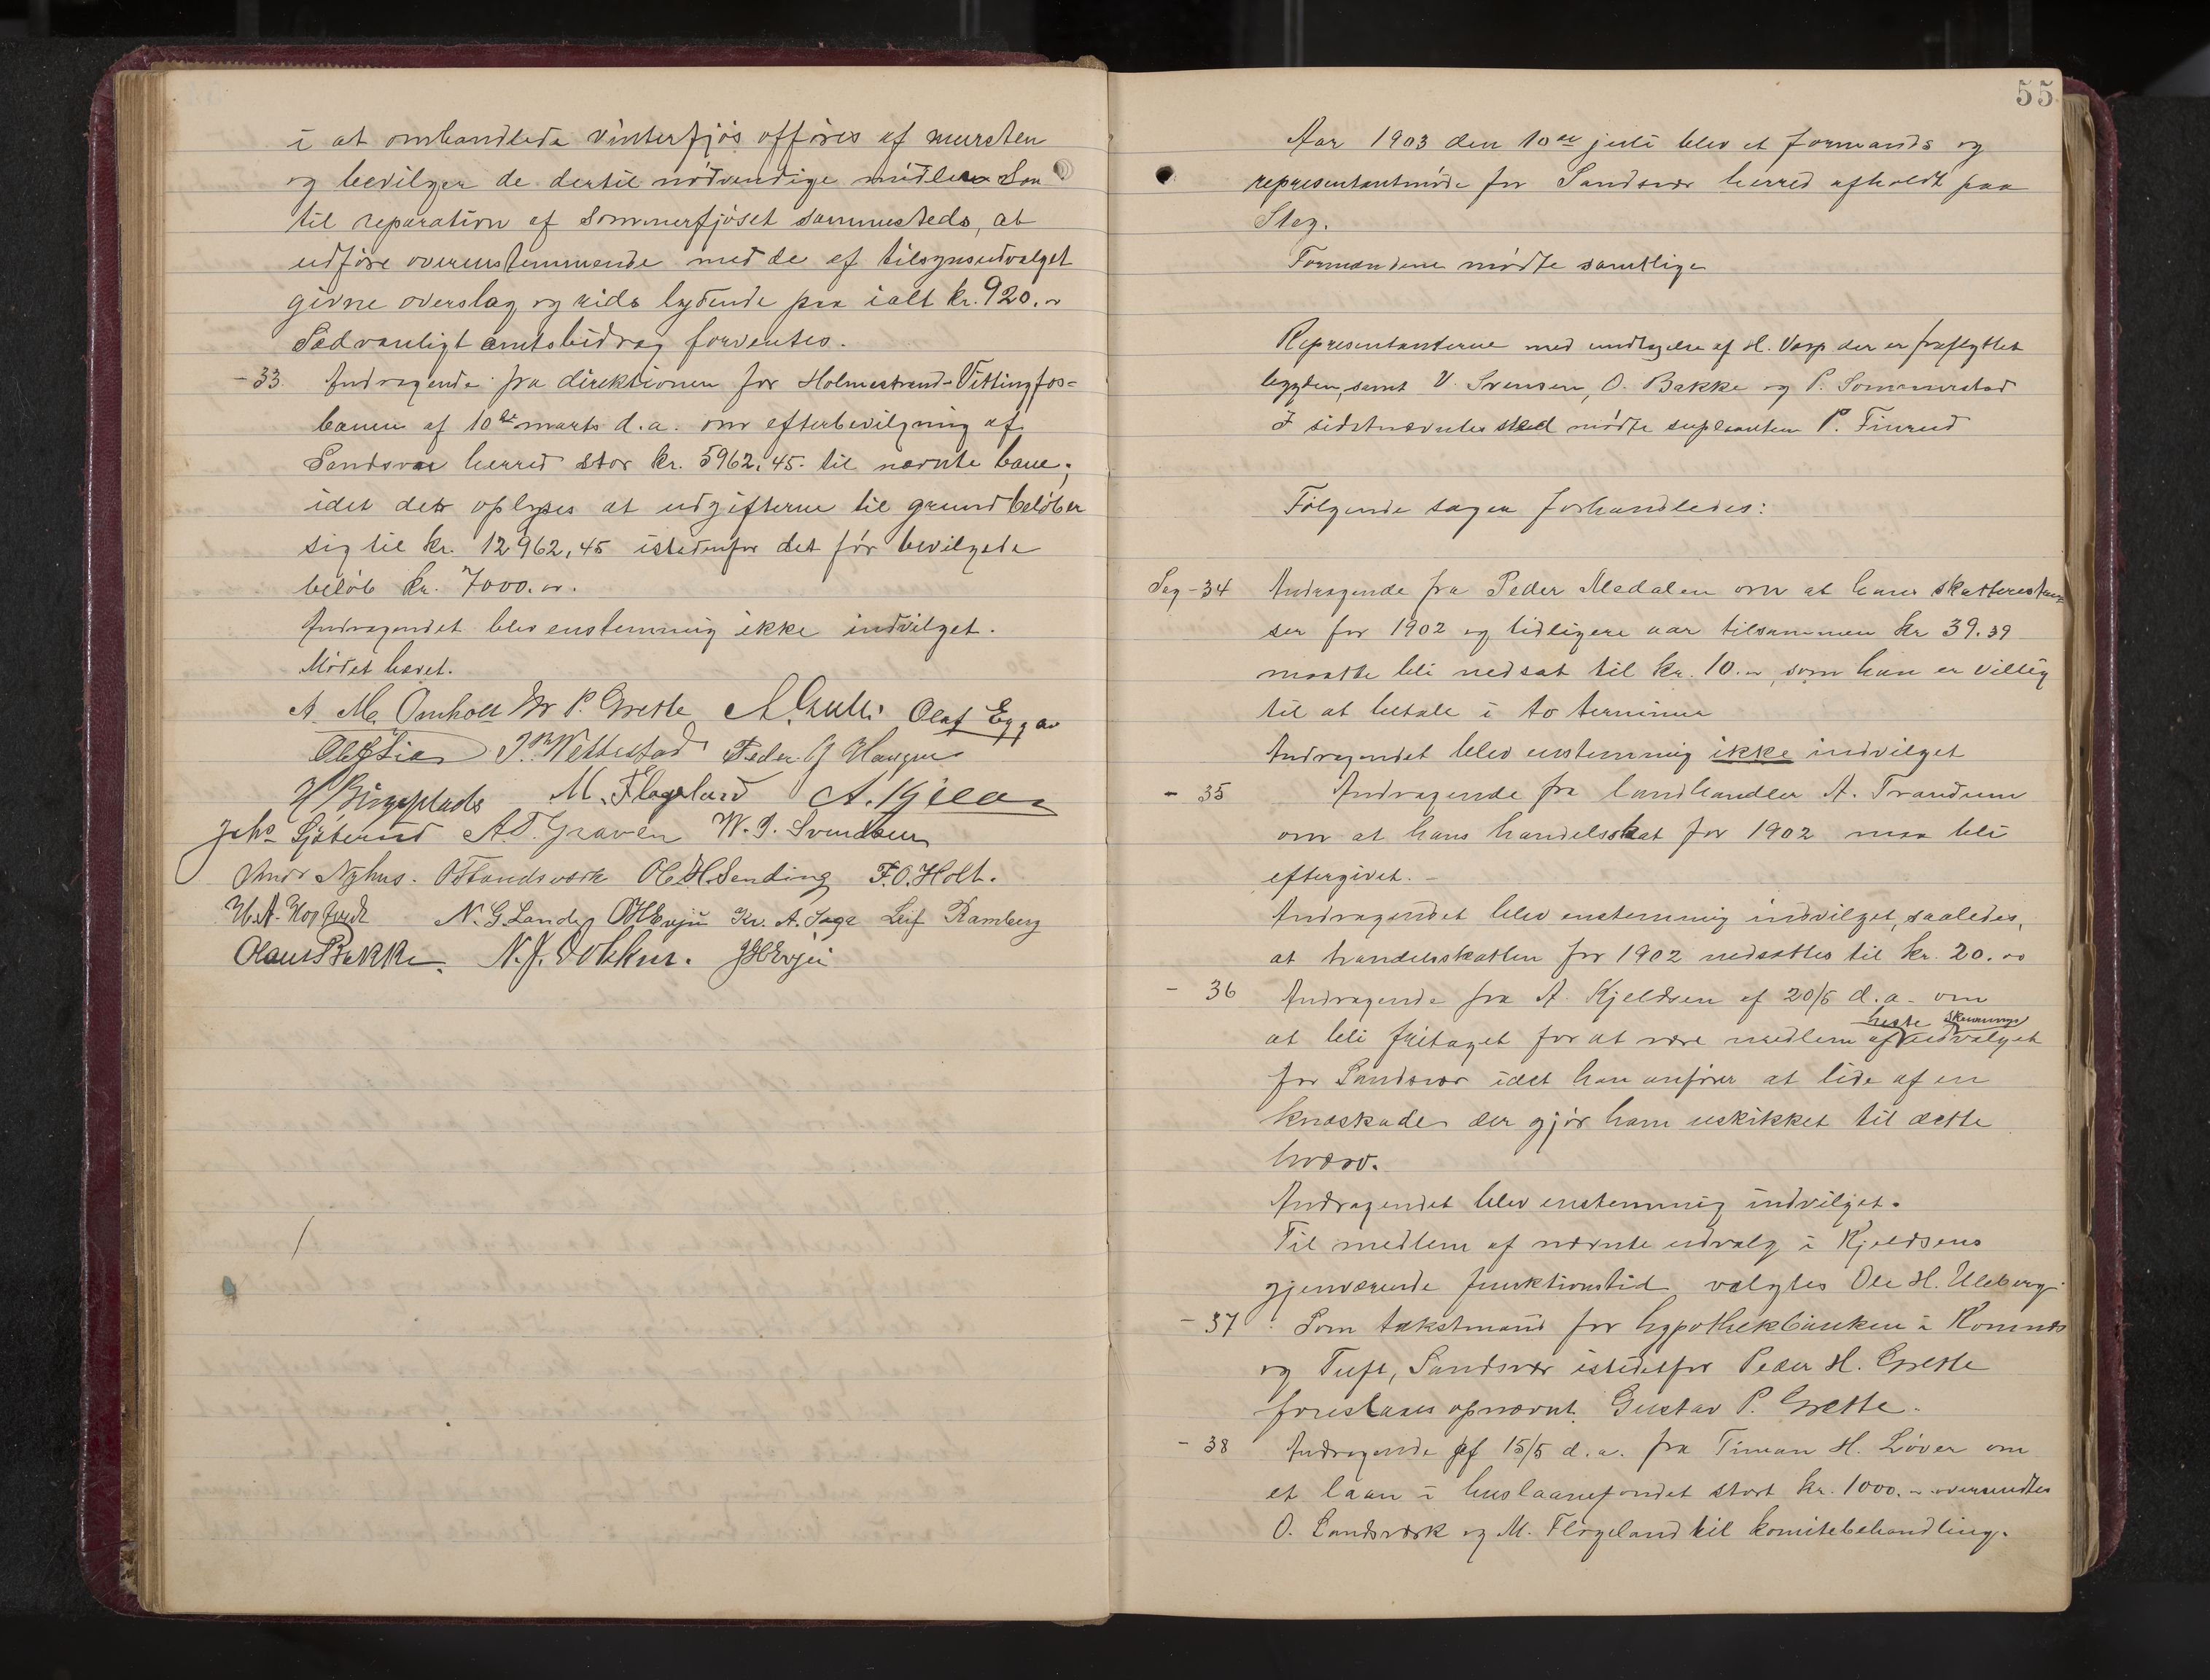 i at omhandlede vinterfjøs opføres af mursten
og bevilger de dertil nødvendige midler. Son
til reparation af sommerfjøset sammesteds, at
udføre overensstemmende med de af tilsynsudvalget
givne overslag og rids lydende paa ialt kr. 920.00
Sædvanligt amtsbidrag forventes.
- 33. Andragende fra direktionen for Holmestrand-Vittingfos=
banen af 10de marts d.a. om efterbevilgning af
Sandsvær herred stor kr. 5962,45 til nævnte bane;
idet det oplyses at udgifterne til grund beløber
sig til kr. 12962,45 istedenfor det før bevilgede
beløb kr. 7000.00.
Andragendet blev enstemmig ikke indvilget.
Mødet hævet.
A. M. Omholt P. Grette Olaf Eggar
Ole Lia P. Wettestad Peder G Haugen
H Bingeplads M. Flageland A. Kjeldsen
Johs Sjøterud A.T. Graven W. J. Svendsen
Andr Nyhus. O Landsværk Ole H. Sending F. O. Holt.
N. G. Lande O H Evju Kr. A. Saga Leif Ramberg
Olaus Bakke. N. J. Dokken. J H Evju
55
Aar 1903 den 10de juli blev et formands og
representantmøde for Sandsvær herred afholdt paa
Steg.
Formændene mødte samtlige
Representanterne med undtagelse af H. Varp der er fraflyttet
bygden, samt V. Svensen, O. Bakke og P. Sommerstad
I sidstnævntes sted mødte suplanten P. Finrud
Følgende sager forhandledes:
Sag - 34 Andragende fra Peder Medalen om at hans skatterestan=
ser for 1902 og tidligere aar tilsammen kr 39.39
maatte bli nedsat til kr. 10.00, som han er villig
til at betale i to terminer
Andragendet blev enstemmig ikke indvilget
- 35 Andragende fra landhandler A. Trandum
om at hans handelsskat for 1902 maa bli
eftergivet. -
Andragendet blev enstemmig indvilget, saaledes,
at handelsskatten for 1902 nedsættes til kr. 20.00
- 36 Andragende fra A. Kjeldsen af 20/5 d.a. om
heste skuenings
at bli fritaget for at være medlem af udvalget
for Sandsvær idet han anfører at lide af en
knæskade der gjør ham uskikket til dette
hværv.
Andragendet blev enstemmig indvilget.
Til medlem af nævnte udvalg i Kjeldsens
gjenværende funktionstid valgtes Ole H. Uleberg.
- 37 Som takstmand for hypothekbanken i Komnes
og Tuft, Sandsvær istedetfor Peder H. Grette
foreslaaes opnævnt Gustav P. Grette.
- 38 Andragende af 15/5 d.a. fra Timan H. Løver om
et laan i huslaanefondet stort kr. 1000.00 oversendtes
O. Landsværk og M. Flageland til komitebehandling.